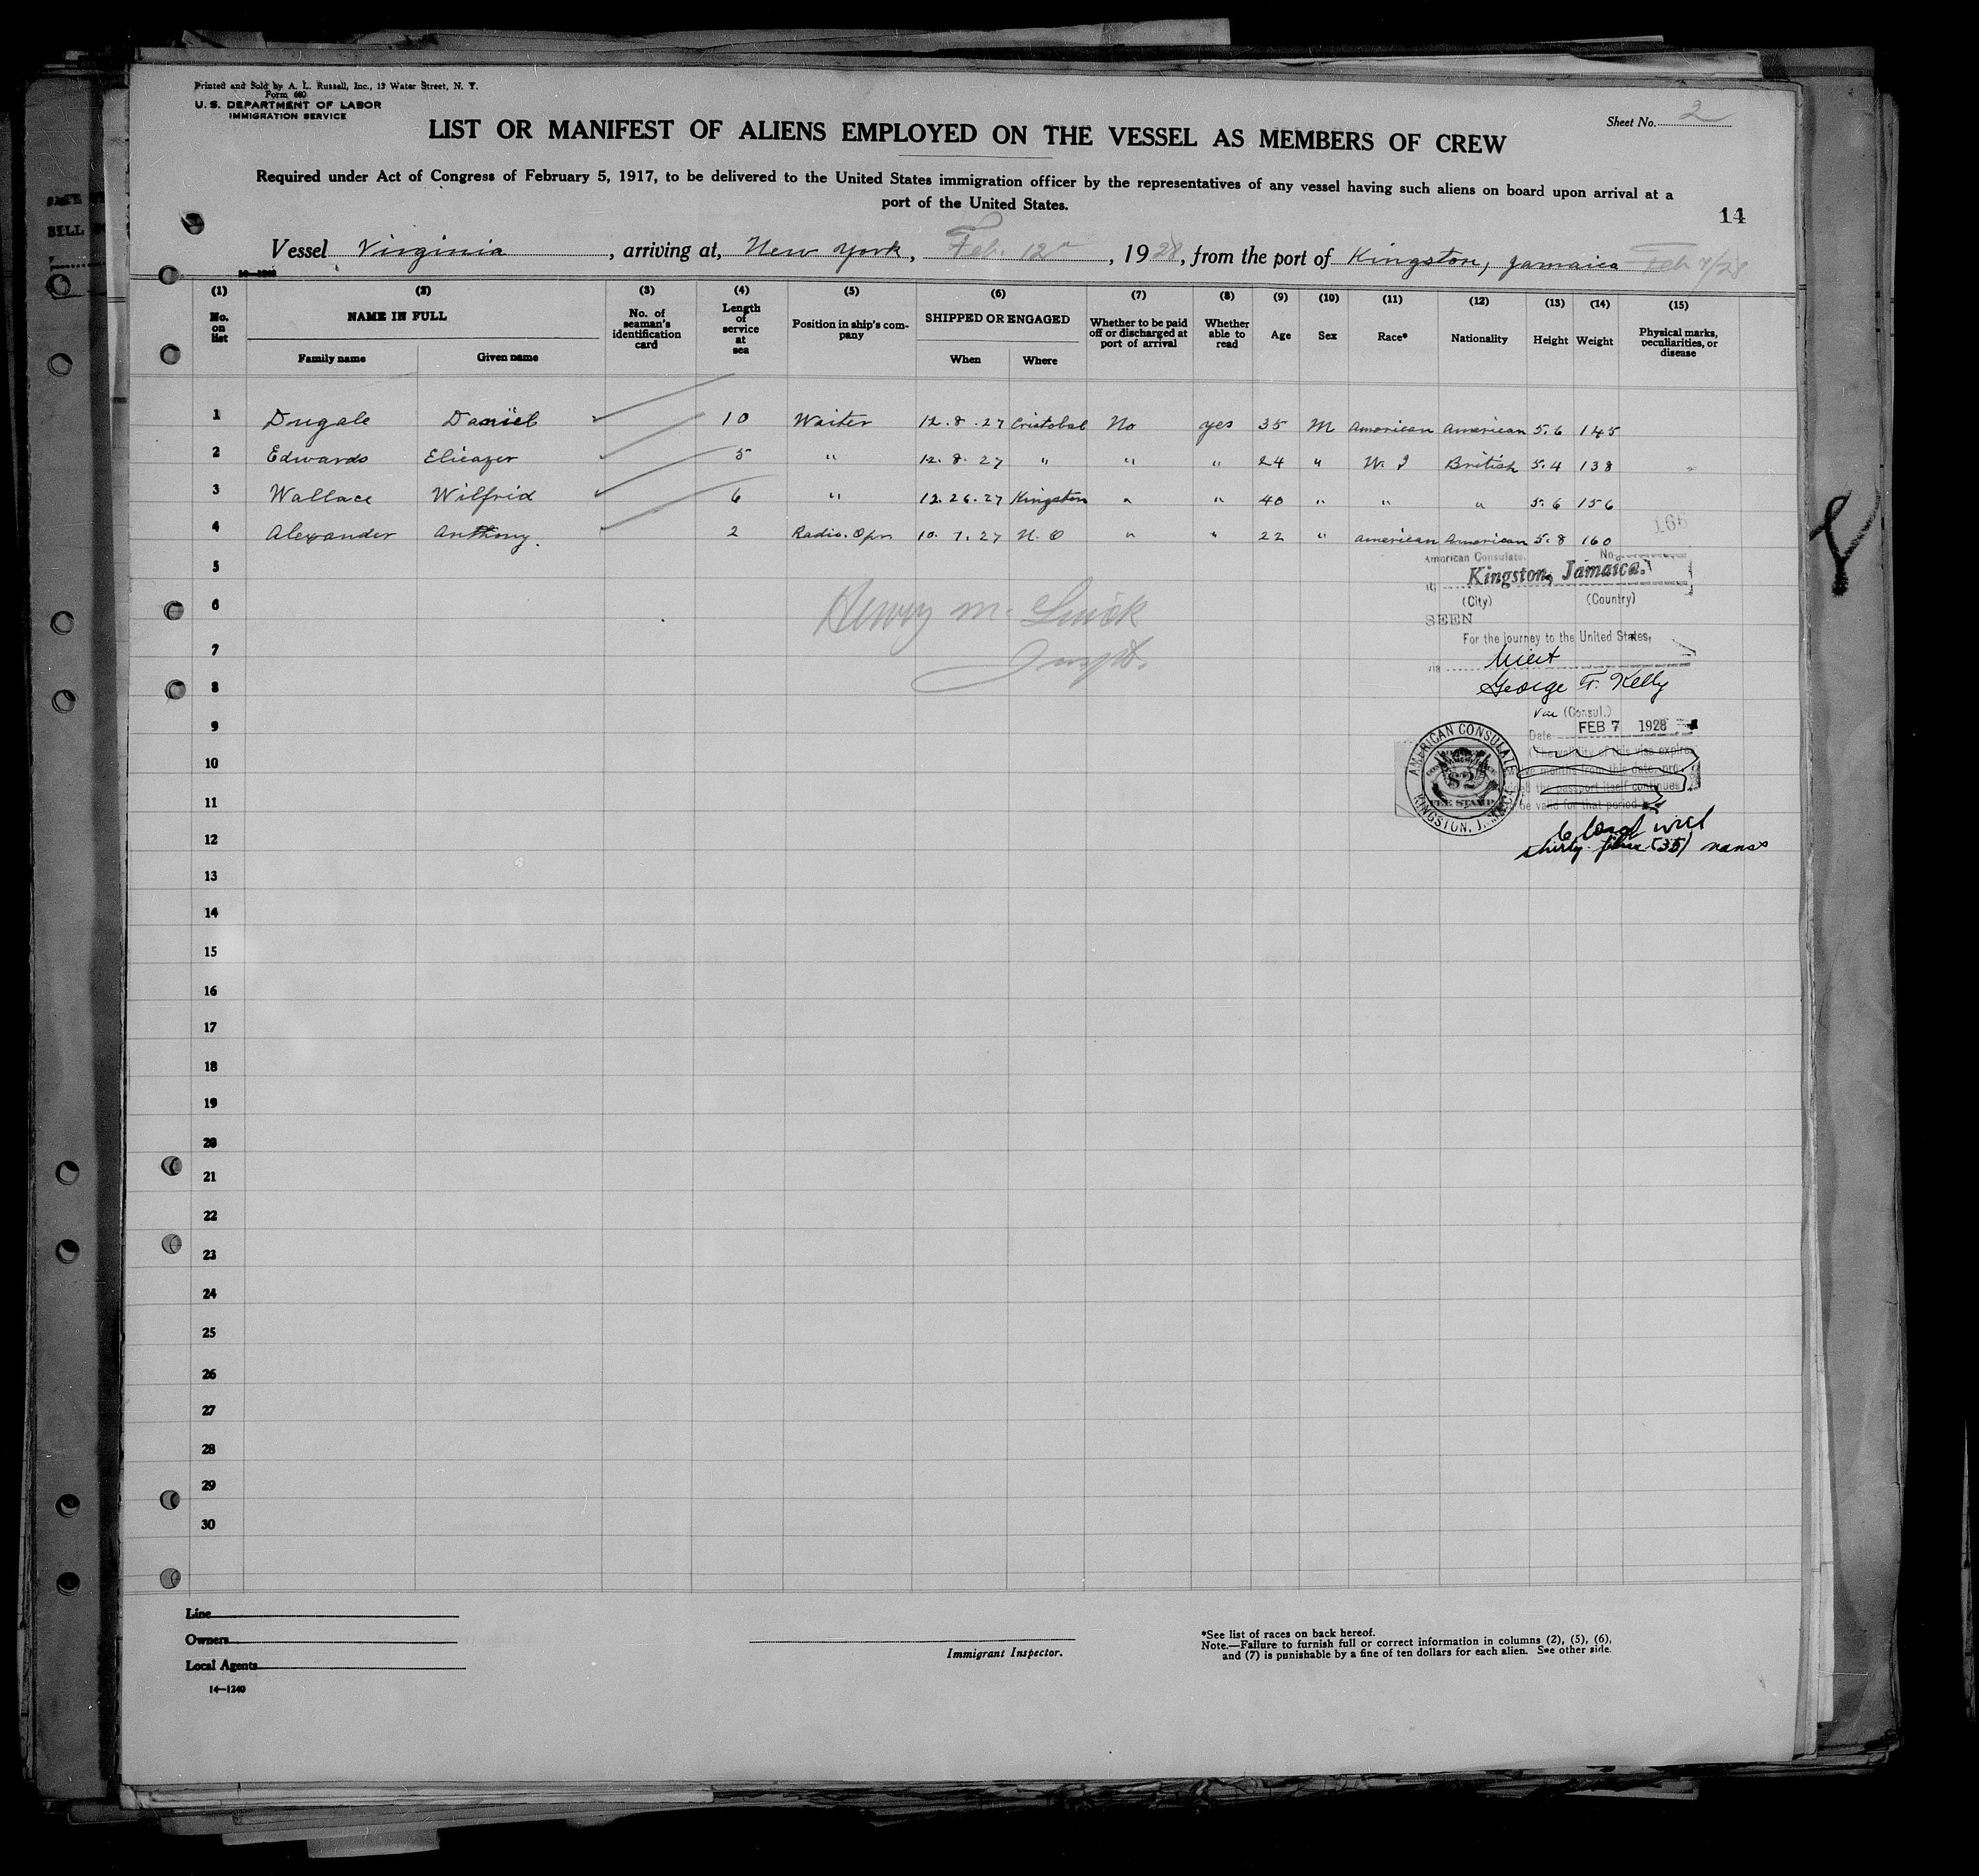 Printed and Sold by A. L. Russell, Inc., 12 Water Street, N. Y.
Form 680
U. S. DEPARTMENT OF LABOR
IMMIGRATION SERVICE
Sheet No. 2
LIST OR MANIFEST OF ALIENS EMPLOYED ON THE VESSEL AS MEMBERS OF CREW
Required under Act of Congress of February 5, 1917, to be delivered to the United States immigration officer by the representatives of any vessel having such aliens on board upon arrival at a
port of the United States.
14
Vessel Virginia, arriving at, New York, Feb. 12th, 1928, from the port of Kingston, Jamaica Feb 7/28
14—1240
(1) (2) (3) (4) (5) (6) (7) (8) (9) (10) (11) (12) (13) (14) (15)
No. on list NAME IN FULL Family name Given name No. of seaman's identification card Length of service at sea Position in ship's company SHIPPED OR ENGAGED When Where Whether to be paid off or discharged at port of arrival Whether able to read Age Sex Race* Nationality Height Weight Physical marks, peculiarities, or disease
1 Dugale Daniel 10 Waiter 12.8.27 Cristobal No yes 35 M American American 5.6 145
2 Edwards Elieazer 5 " 12.8.27 " " " 24 " W. I British 5.4 138
3 Wallace Wilfrid 6 " 12.26.27 Kingston " " 40 " " " 5.6 156
4 Alexander Anthony. 2 Radio. Opr 10.7.27 N. O " " 22 " American American 5.8 160
166
5
American Consulate. No.
at Kingston, Jamaica.
6
(City) (Country)
SEEN
For the journey to the United States,
Henry M.
Inspt.
7
via direct
8
George F. Kelly
Vice (Consul.)
9
Date FEB 7 1928
AMERICAN CONSULATE
KINGSTON, JAMAICA
$2
FEE STAMP
10
(The validity of this visa expires
twelve months from this date, pro-
vided the passport itself continues
11
to be valid for that period
12
thirty five (35) names
13
14
15
16
17
18
19
20
21
22
23
24
25
26
27
28
29
30
Line
Owners
Local Agents
14—1240
Immigrant Inspector.
*See list of races on back hereof.
Note.—Failure to furnish full or correct information in columns (2), (5), (6),
and (7) is punishable by a fine of ten dollars for each alien. See other side.